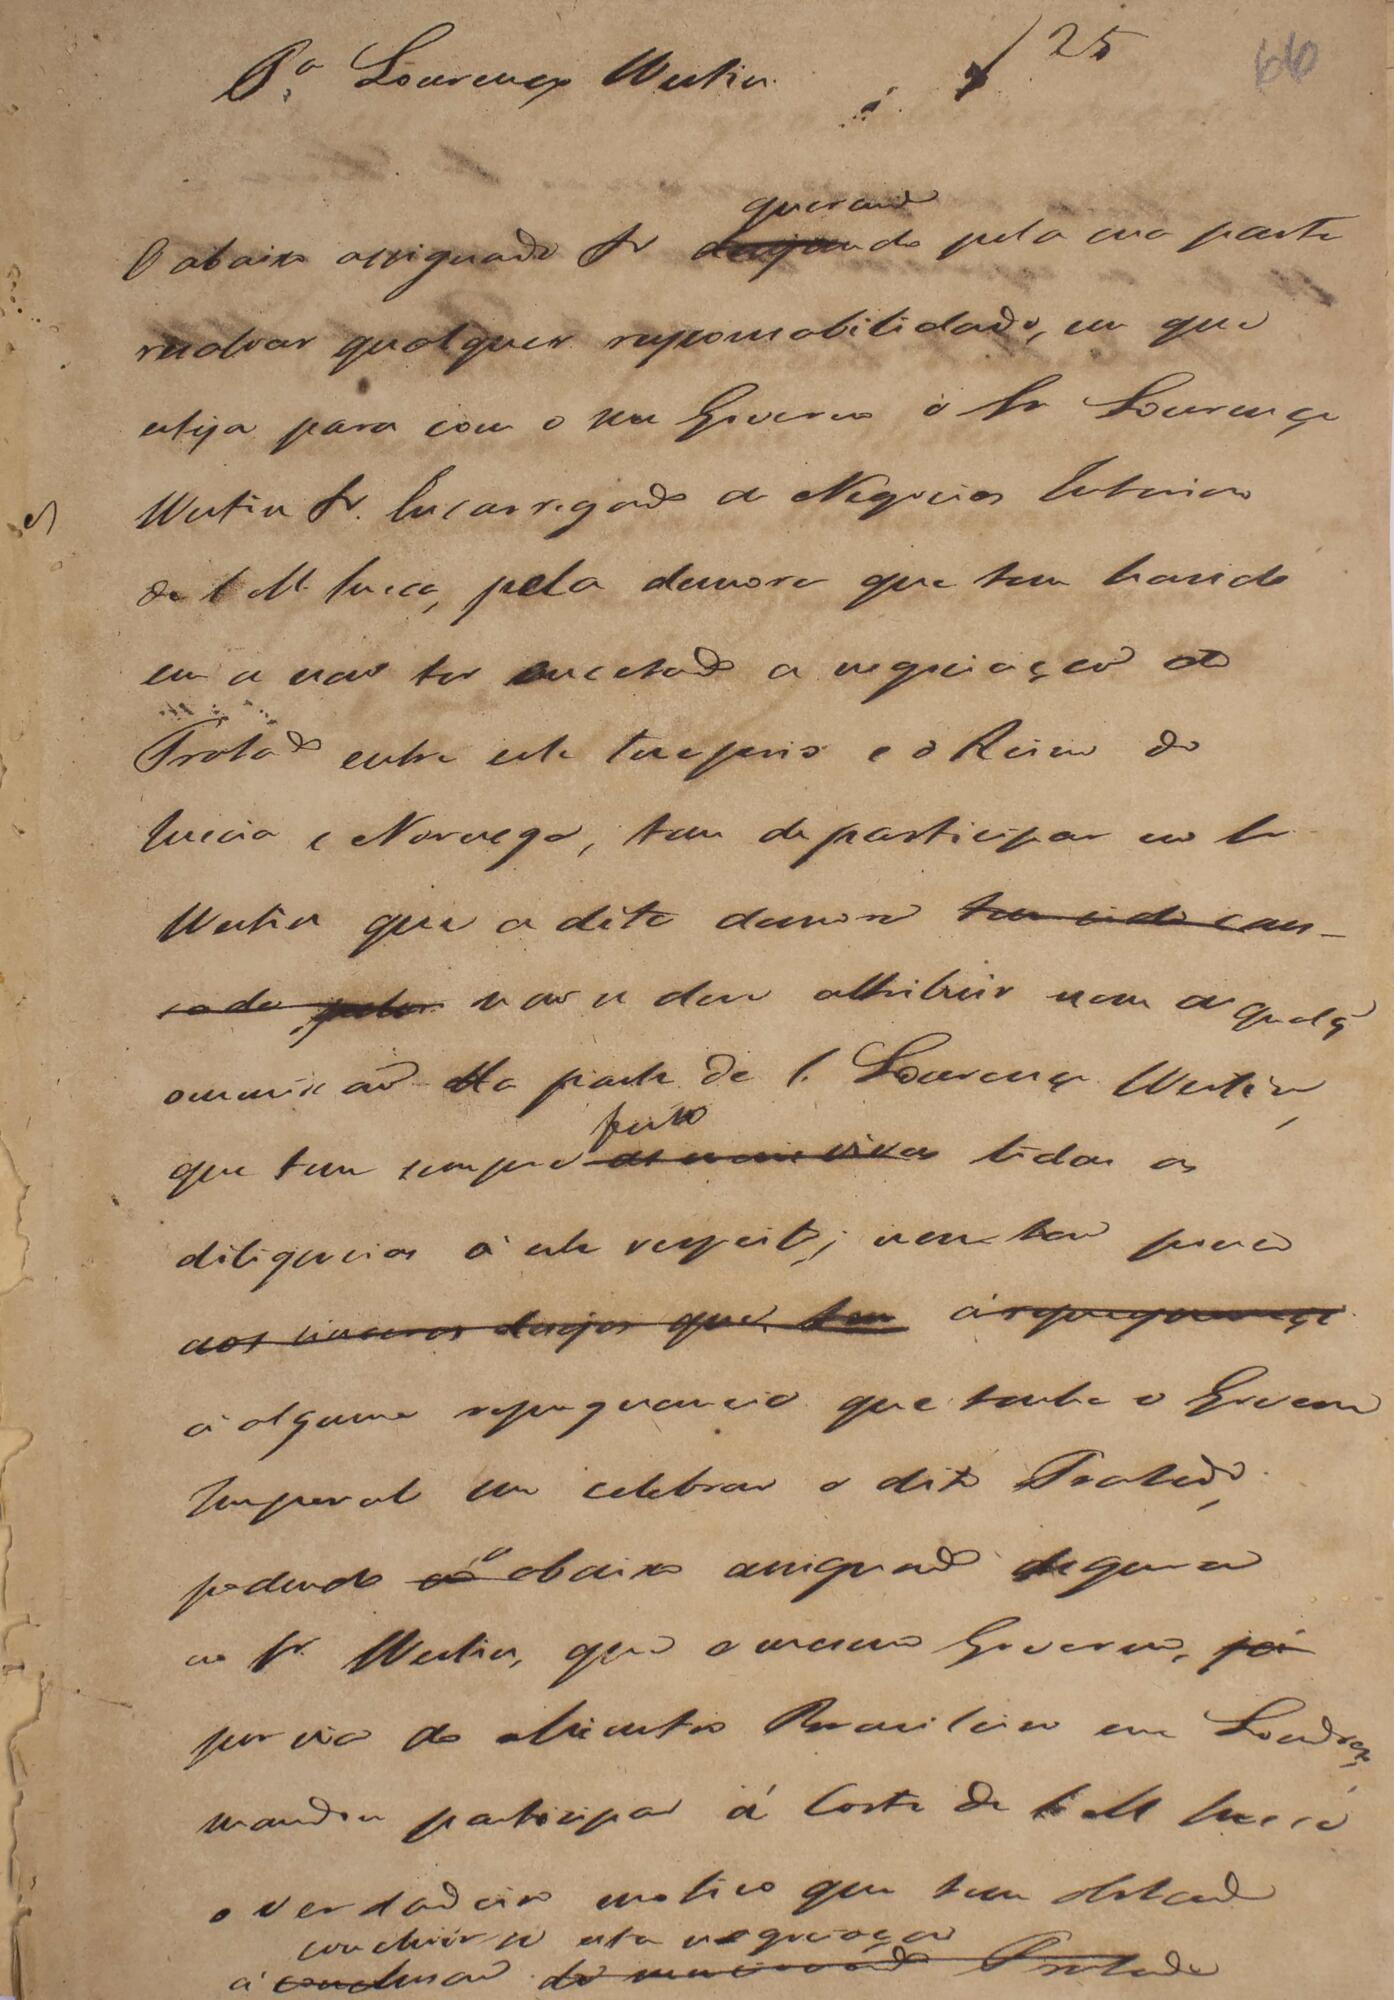 P.a Lourenço Westin.
25
66
querendo
O abaixo assignado Sr desejando pela sua parte
resalvar qualquer responsabilidade, em que
esteja para com o seu Governo o Sr Lourenço
Westin Sr. Encarregado de Negocios Interino
de S M. Sueca, pela demora que tem havido
em se não ter encetado a negociação do
Tratado entre este Imperio e o Reino da
Suecia e Noruega, tem de participar ao Sr
Westin que a dita demora tem sido cau-
sada pelos não se deve attribuir nem a qualqr
ommissão da parte de S. Lourenço Westin,
feito
que tem sempre as mais vivas todas as
diligencias á este respeito; nem tão pouco
aos sinceros desejos que tem
á alguma repugnancia que tenha o Governo
Imperial em celebrar o dito Tratado,
podendo ao o abaixo assignado segurar
ao Sr. Westin, que o mesmo Governo, já
por via do Ministro Brasileiro em Londres,
mandou participar á Corte de S M Sueca
o verdadeiro motivo que tem obstado
concluir se esta negociação
á conclusão do mencionado Tratado